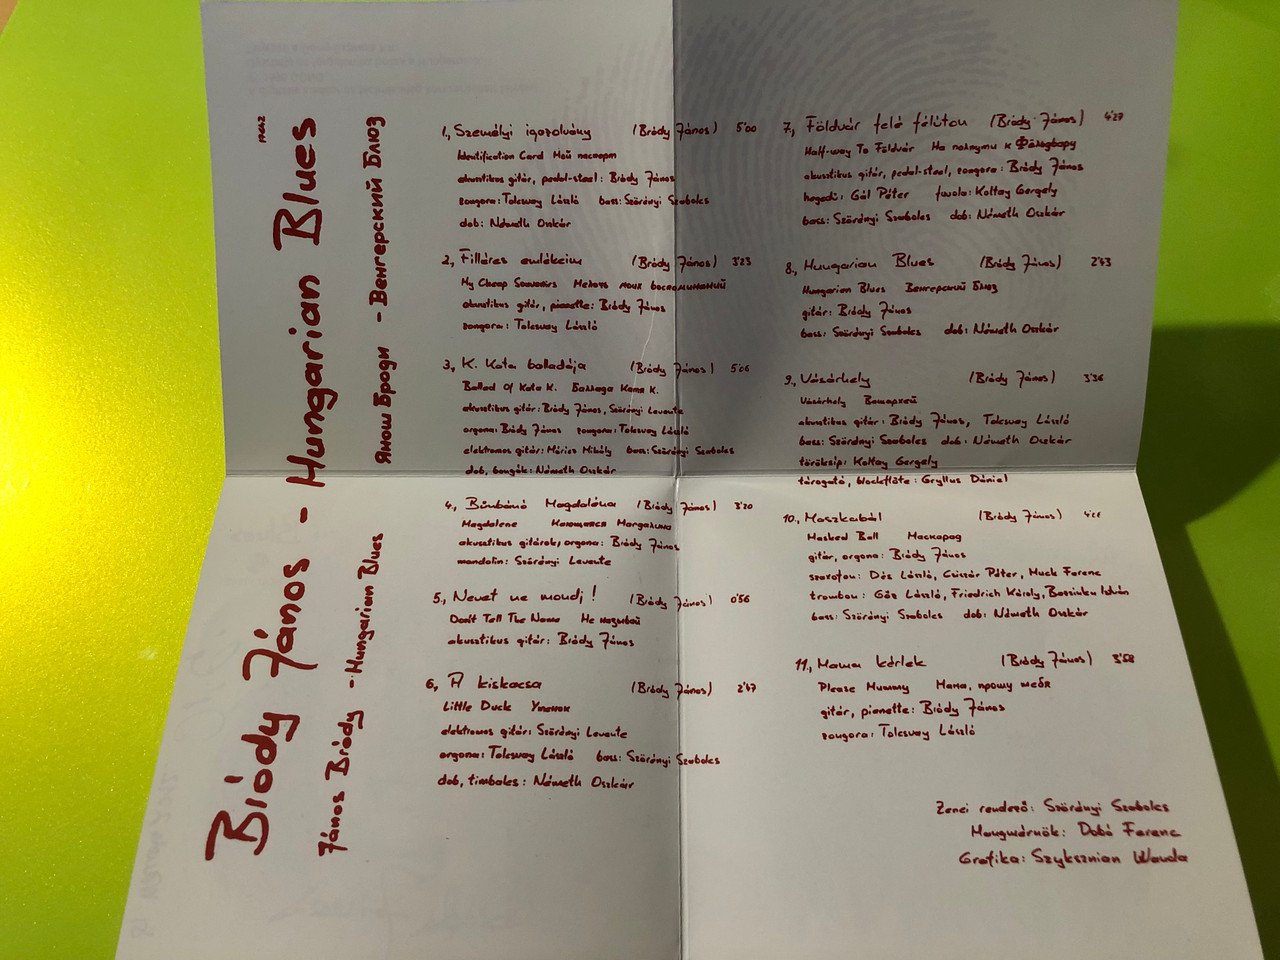 17642
Bródy János - Hungarian Blues
János Bródy - Hungarian Blues
Янош Броди - Венгерский Блюз
1., Személyi igazolvány (Bródy János) 5'00
Identification Card Мой паспорт
akusztikus gitár, pedal-steel: Bródy János
zongora: Tolcsvay László bass: Szörényi Szabolcs
dob: Németh Oszkár
2., Filléres emlékeim (Bródy János) 3'23
My Cheap Souvenirs Мелочь моих воспоминаний
akusztikus gitár, pianette: Bródy János
zongora: Tolcsvay László
3., K. Kata balladája (Bródy János) 5'06
Ballad Of Kata K. БалладаКата К.
akusztikus gitár: Bródy János, Szörényi Levente
orgona: Bródy János zongora: Tolcsvay László
elektromos gitár: Móricz Mihály bass: Szörényi Szabolcs
dob, bongók: Németh Oszkár
4., Bűnbánó Magdaléna (Bródy János) 3'20
Magdalene Кающаяся Магдалина
akusztikus gitárok, orgona: Bródy János
mandolin: Szörényi Levente
5., Nevet ne mondj! (Bródy János) 0'56
Don't Tell The Name Не называй
akusztikus gitár: Bródy János
6., A kiskacsa (Bródy János) 2'47
Little Duck Утенок
elektromos gitár: Szörényi Levente
orgona: Tolcsvay László bass: Szörényi Szabolcs
dob, timbales: Németh Oszkár
7., Földvár felé félúton (Bródy János) 4'27
Half-way To Földvár На полпути к Фёльдвару
akusztikus gitár, pedal-steel, zongora: Bródy János
hegedű: Gál Péter fuvola: Koltay Gergely
bass: Szörényi Szabolcs dob: Németh Oszkár
8., Hungarian Blues (Bródy János) 2'43
Hungarian Blues Венгерский Блюз
gitár: Bródy János
bass: Szörényi Szabolcs dob: Németh Oszkár
9., Vásárhely (Bródy János) 3'36
Vásárhely Вашархей
akusztikus gitár: Bródy János, Tolcsvay László
bass: Szörényi Szabolcs dob: Németh Oszkár
töröksíp: Koltay Gergely
tárogató, blockflöte: Gryllus Dániel
10., Maszkabál (Bródy János)
Masked Ball Маскарад
gitár, orgona: Bródy János
szaxofon: Dés László, Csiszár Péter, Muck Ferenc
trombon: Gőz László, Friedrich Károly, István
bass: Szörényi Szabolcs dob: Németh Oszkár
11., Mama kérlek (Bródy János) 3'58
Please Mummy Мама, прошу тебя
gitár, pianette: Bródy János
zongora: Tolcsvay László
Zenei rendező: Szörényi Szabolcs
Hangmérnök: Dobó Ferenc
Grafika: Szyksznian Wanda